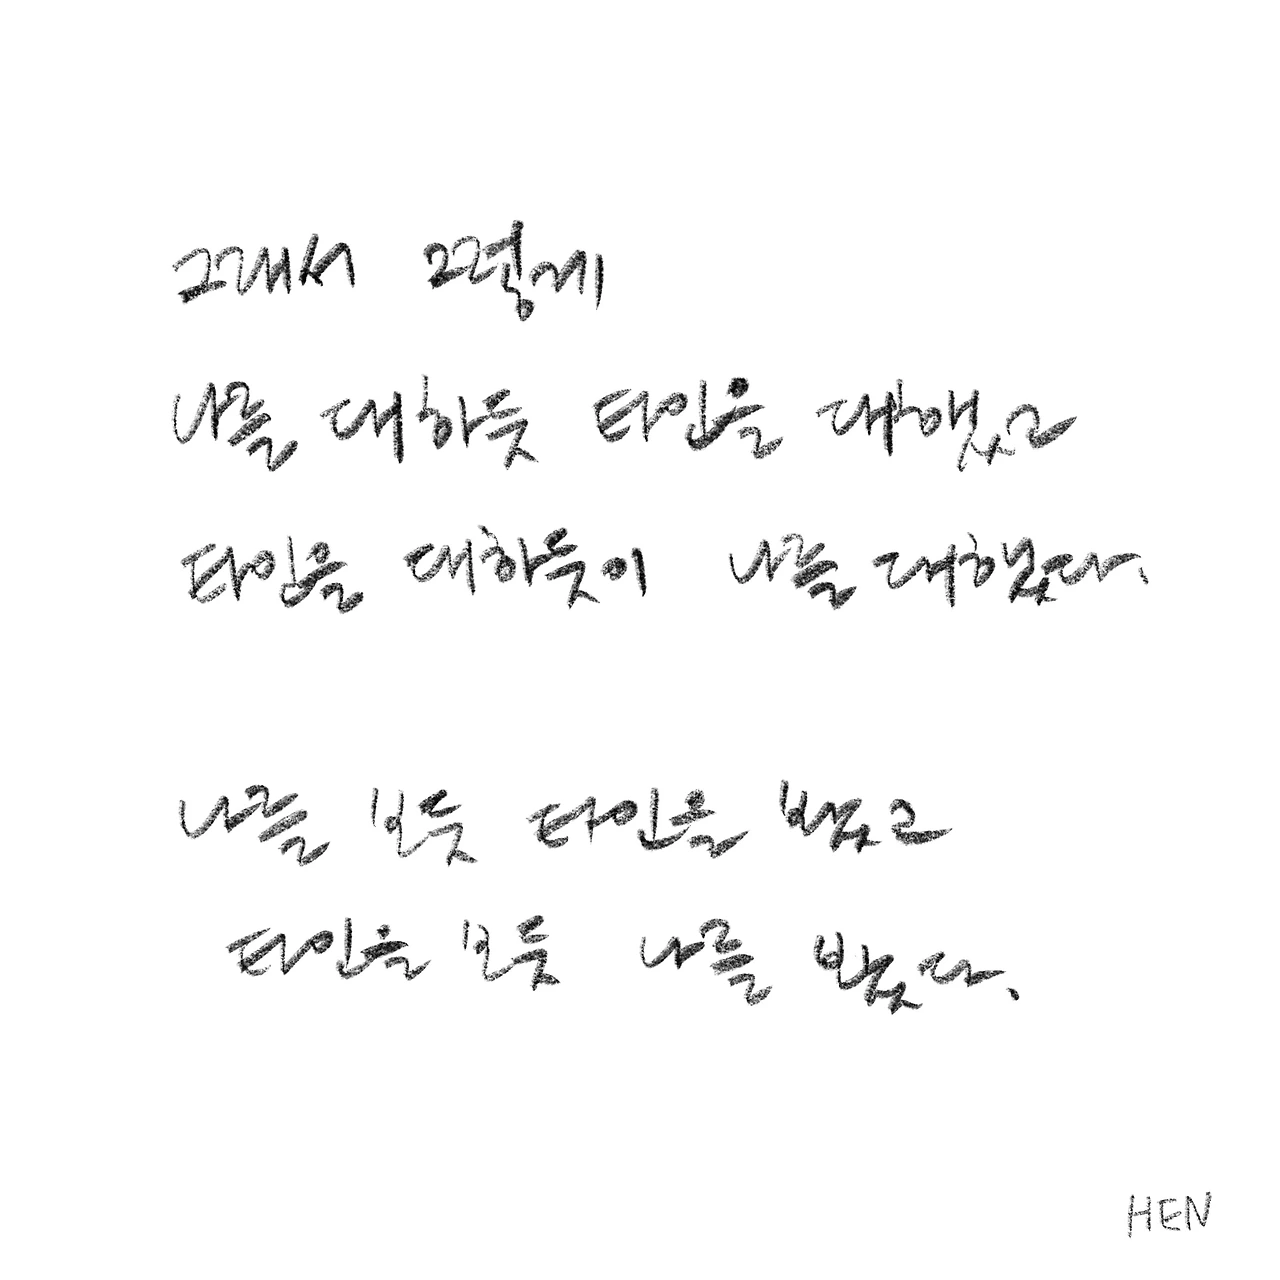 그래서 그렇게
나를 대하듯 타인을 대했고
타인을 대하듯이 나를 대했다.
나를 보듯 타인을 봤고
타인을 보듯 나를 봤다.
HEN